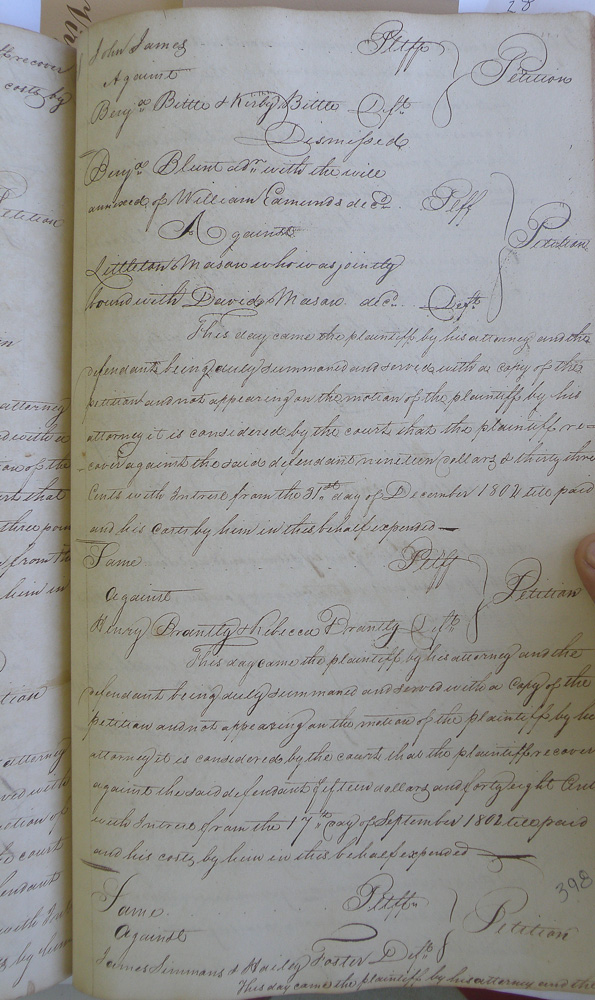 28
John James Pltff
Against
Petition
Benja Bittle & Kirby Bittle Deft
Dismissed
Benja Blunt admr with the will
annexed of William Edmunds decd. Pltff
Against
Petition
Littleton Mason who was jointly
bound with David Mason decd. Deft
This day came the plaintiff by his attorney and the
defendant being duly summoned and served with a copy of the
petition and not appearing on the motion of the plaintiff by his
attorney it is considered by the court that the plaintiff re=
cover against the said defendant nineteen dollars & thirty three
Cents with Intrest from the 31st day of December 1802 till paid
and his costs by him in this behalf expended
Same Pltff
Against
Petition
Henry Brantly & Rebecca Brantly Deft
This day came the plaintiff by his attorney and the
defendants being duly summoned and served with a Copy of the
petition and not appearing on the motion of the plaintiff by his
attorney it is considered by the court that the plaintiff recover
against the said defendant fifteen dollars and forty eight Cents
with Intrest from the 17th day of September 1802 till paid
and his costs by him in this behalf expended
398
Same Pltff
Against
Petition
James Simmons & Hailey Foster Deft
This day came the plaintiff by his attorney and the